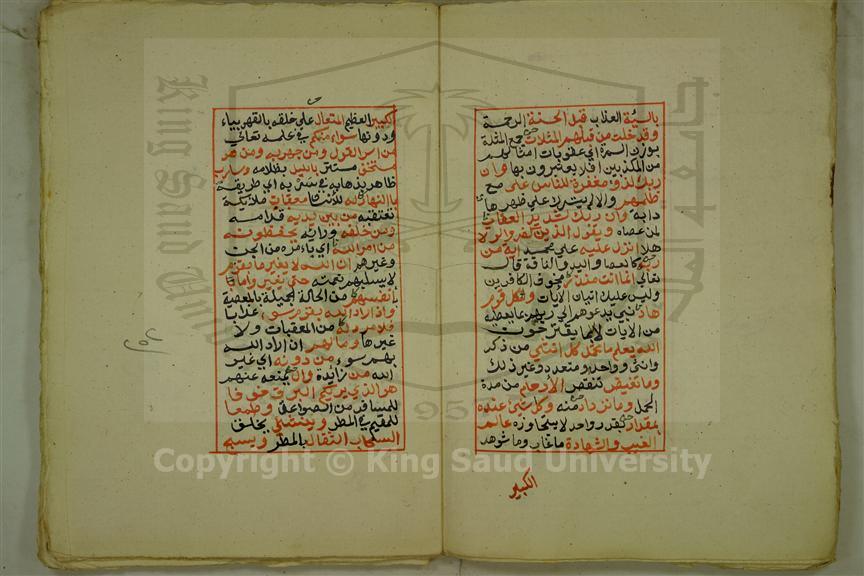 بالسيئة العذاب قبل الحسنة الرحمة
وقد خلت من قبلهم المثلات جمع المثلة
بوزن السمرة اي عقوبات امثالهم
من المكذبين افلا يعتبرون بها وان
ربك لذو مغفرة للناس على مع
ظلمهم والا لم يترك على ظهرها
دابة وان ربك لشديد العقاب
لمن عصاه ويقول الذين كفروا لولا
هلا انزل عليه على محمد اية من
ربه كالعصا واليد والناقة قال
تعالى انما انت منذر مخوف الكافرين
وليس عليك اتيان الايات ولكل قوم
هاد نبي يدعوهم الى ربهم بما يعطيه
من الايات لا بما يقترحون
الله يعلم ما تحمل كل انثى من ذكر
وانثى وواحد ومتعدد وغير ذلك
وما تغيض تنقص الارحام من مدة
الحمل وما تزداد منه وكل شئ عنده
بمقدار بقدر وواحد لا يتجاوزه عالم
الغيب والشهادة ما غاب وما شوهد
الكبير
الكبير العظيم المتعال على خلقه بالقهر بياء
ودونها سواء منكم في علمه تعالى
من اسر القول ومن جهر به ومن هو
مستخف مستتر بالليل بظلامه وسارب
ظاهر بذهابه في سربه اي طريقه
بالنهار له للانسان معقبات ملائكة
تعتقبه من بين يديه قدامه
ومن خلفه ورائه يحفظونه
من امر الله اي بامره من الجن
وغيرهم ان الله لا يغير ما بقوم
لا يسلبهم نعمته حتى يغيروا ما
بانفسهم من الحالة الجميلة بالمعصية
واذا اراد الله بقوم سوء عذابا
فلا مرد له من المعقبات ولا
غيرها وما لهم ان اراد الله
بهم سوء من دونه اي غير
الله من زائدة وال يمنعه عنهم
هو الذي يريكم البرق خوفا
للمسافر من الصواعق وطمعا
للمقيم في المطر وينشئ يخلق
السحاب الثقال بالمطر ويسبح
King Saud University
جامعة الملك سعود
1957
Copyright © King Saud University